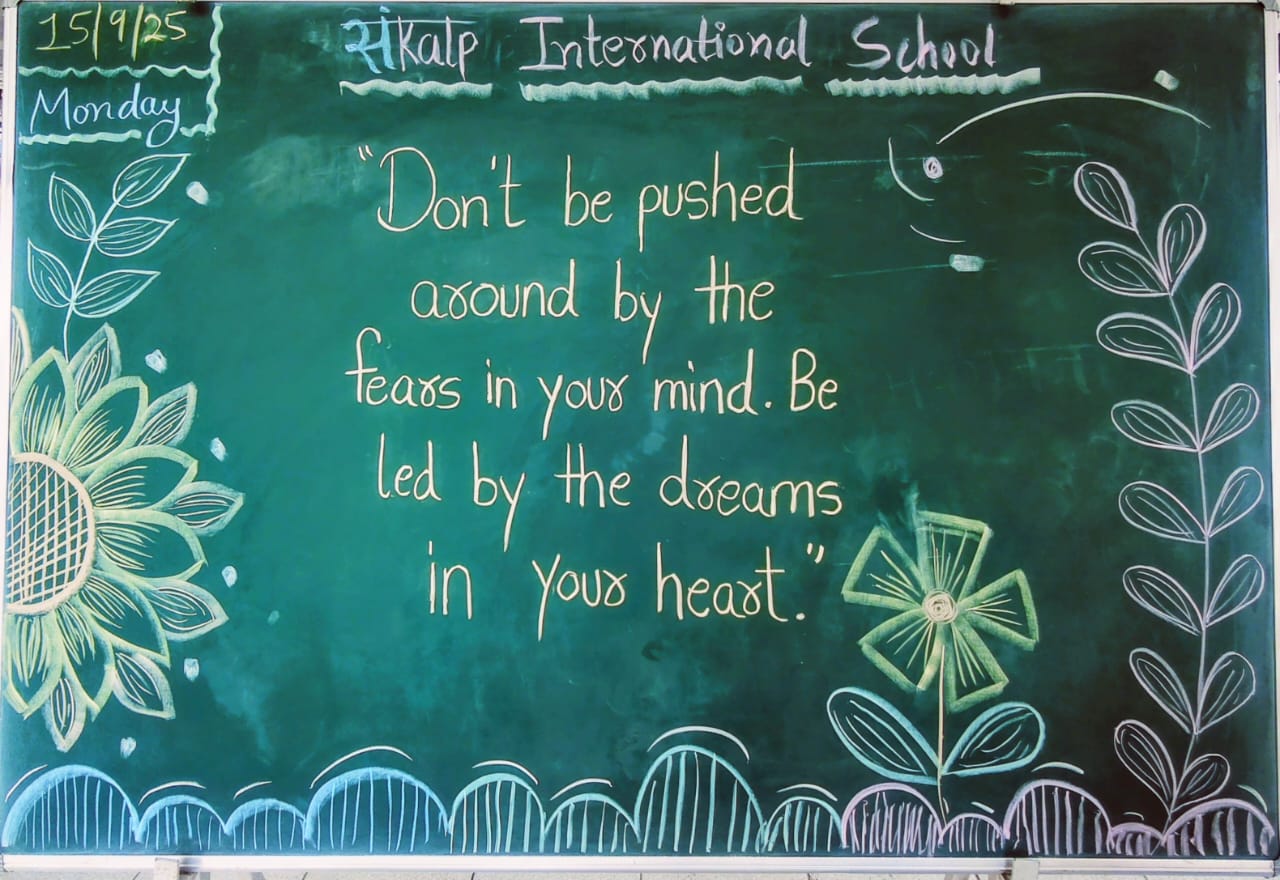 15/9/25
Monday
संkalp International School
"Don't be pushed
around by the
fears in your mind. Be
led by the dreams
in your heart."